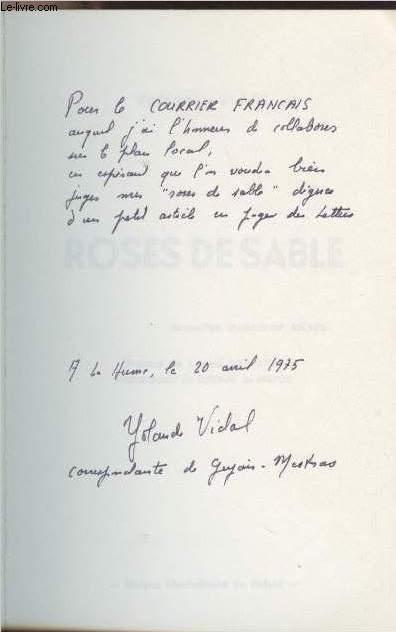 Le-livre.com
Pour le COURRIER FRANCAIS
auquel j'ai l'honneur de collaborer
sur le plan local,
en espérant que l'on voudra bien
juger mes "roses de sable" dignes
d'un petit article en page des Lettres
ROSES DE SABLE
A La Hume, le 20 avril 1975
Yolande Vidal
correspondante de Gujan-Mestras